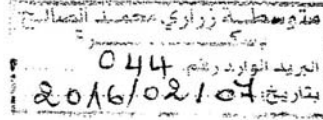 متوسطة زراري محمد الصالح
البريد الوارد رقم 044
بتاريخ: 2016/02/07